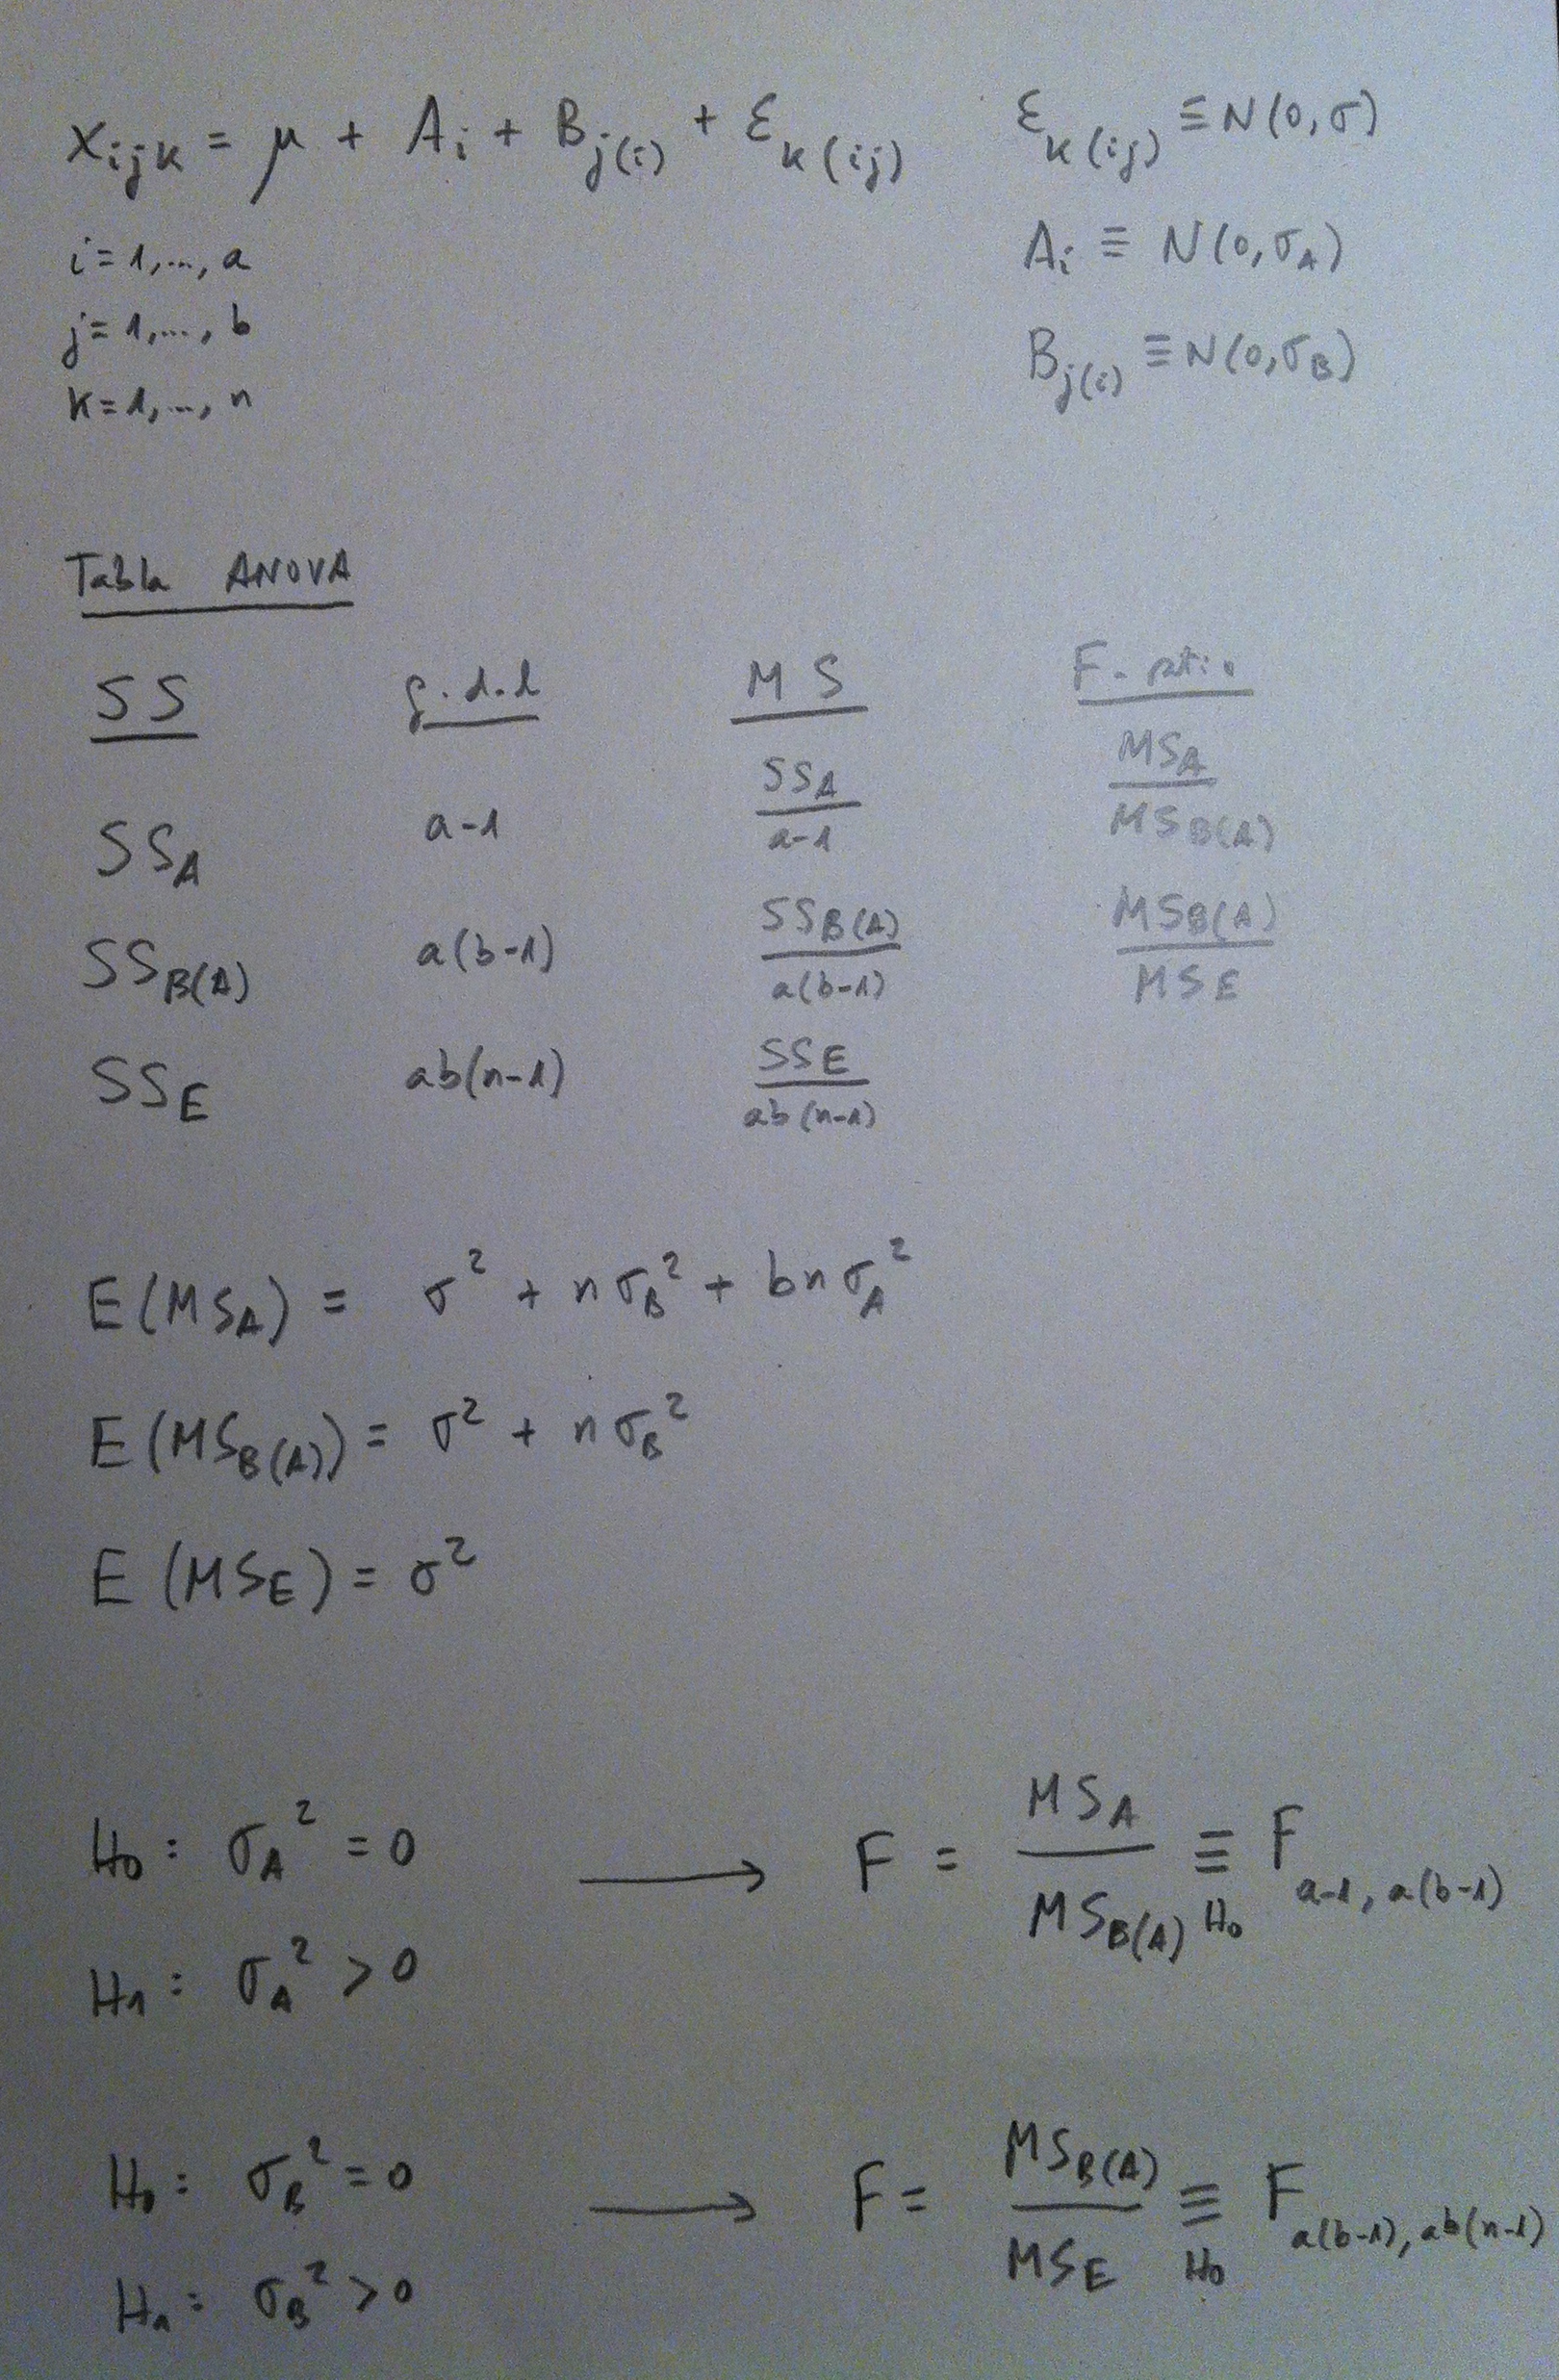 x_ijk = μ + A_i + B_j(i) + ε_k(ij)    ε_k(ij) ≡ N(0,σ)
i=1,...,a    A_i ≡ N(0,σ_A)
j=1,...,b    B_j(i) ≡ N(0,σ_B)
k=1,...,n
Tabla ANOVA
SS    g.d.l    MS    F-ratio
SS_A    a-1    SS_A/a-1    MS_A/MS_B(A)
SS_B(A)    a(b-1)    SS_B(A)/a(b-1)    MS_B(A)/MS_E
SS_E    ab(n-1)    SS_E/ab(n-1)
E(MS_A) = σ² + nσ_B² + bnσ_A²
E(MS_B(A)) = σ² + nσ_B²
E(MS_E) = σ²
H0: σ_A² = 0 ⟶ F = MS_A/MS_B(A) ≡_H0 F_a-1, a(b-1)
H1: σ_A² > 0
H0: σ_B² = 0 ⟶ F = MS_B(A)/MS_E ≡_H0 F_a(b-1), ab(n-1)
H1: σ_B² > 0